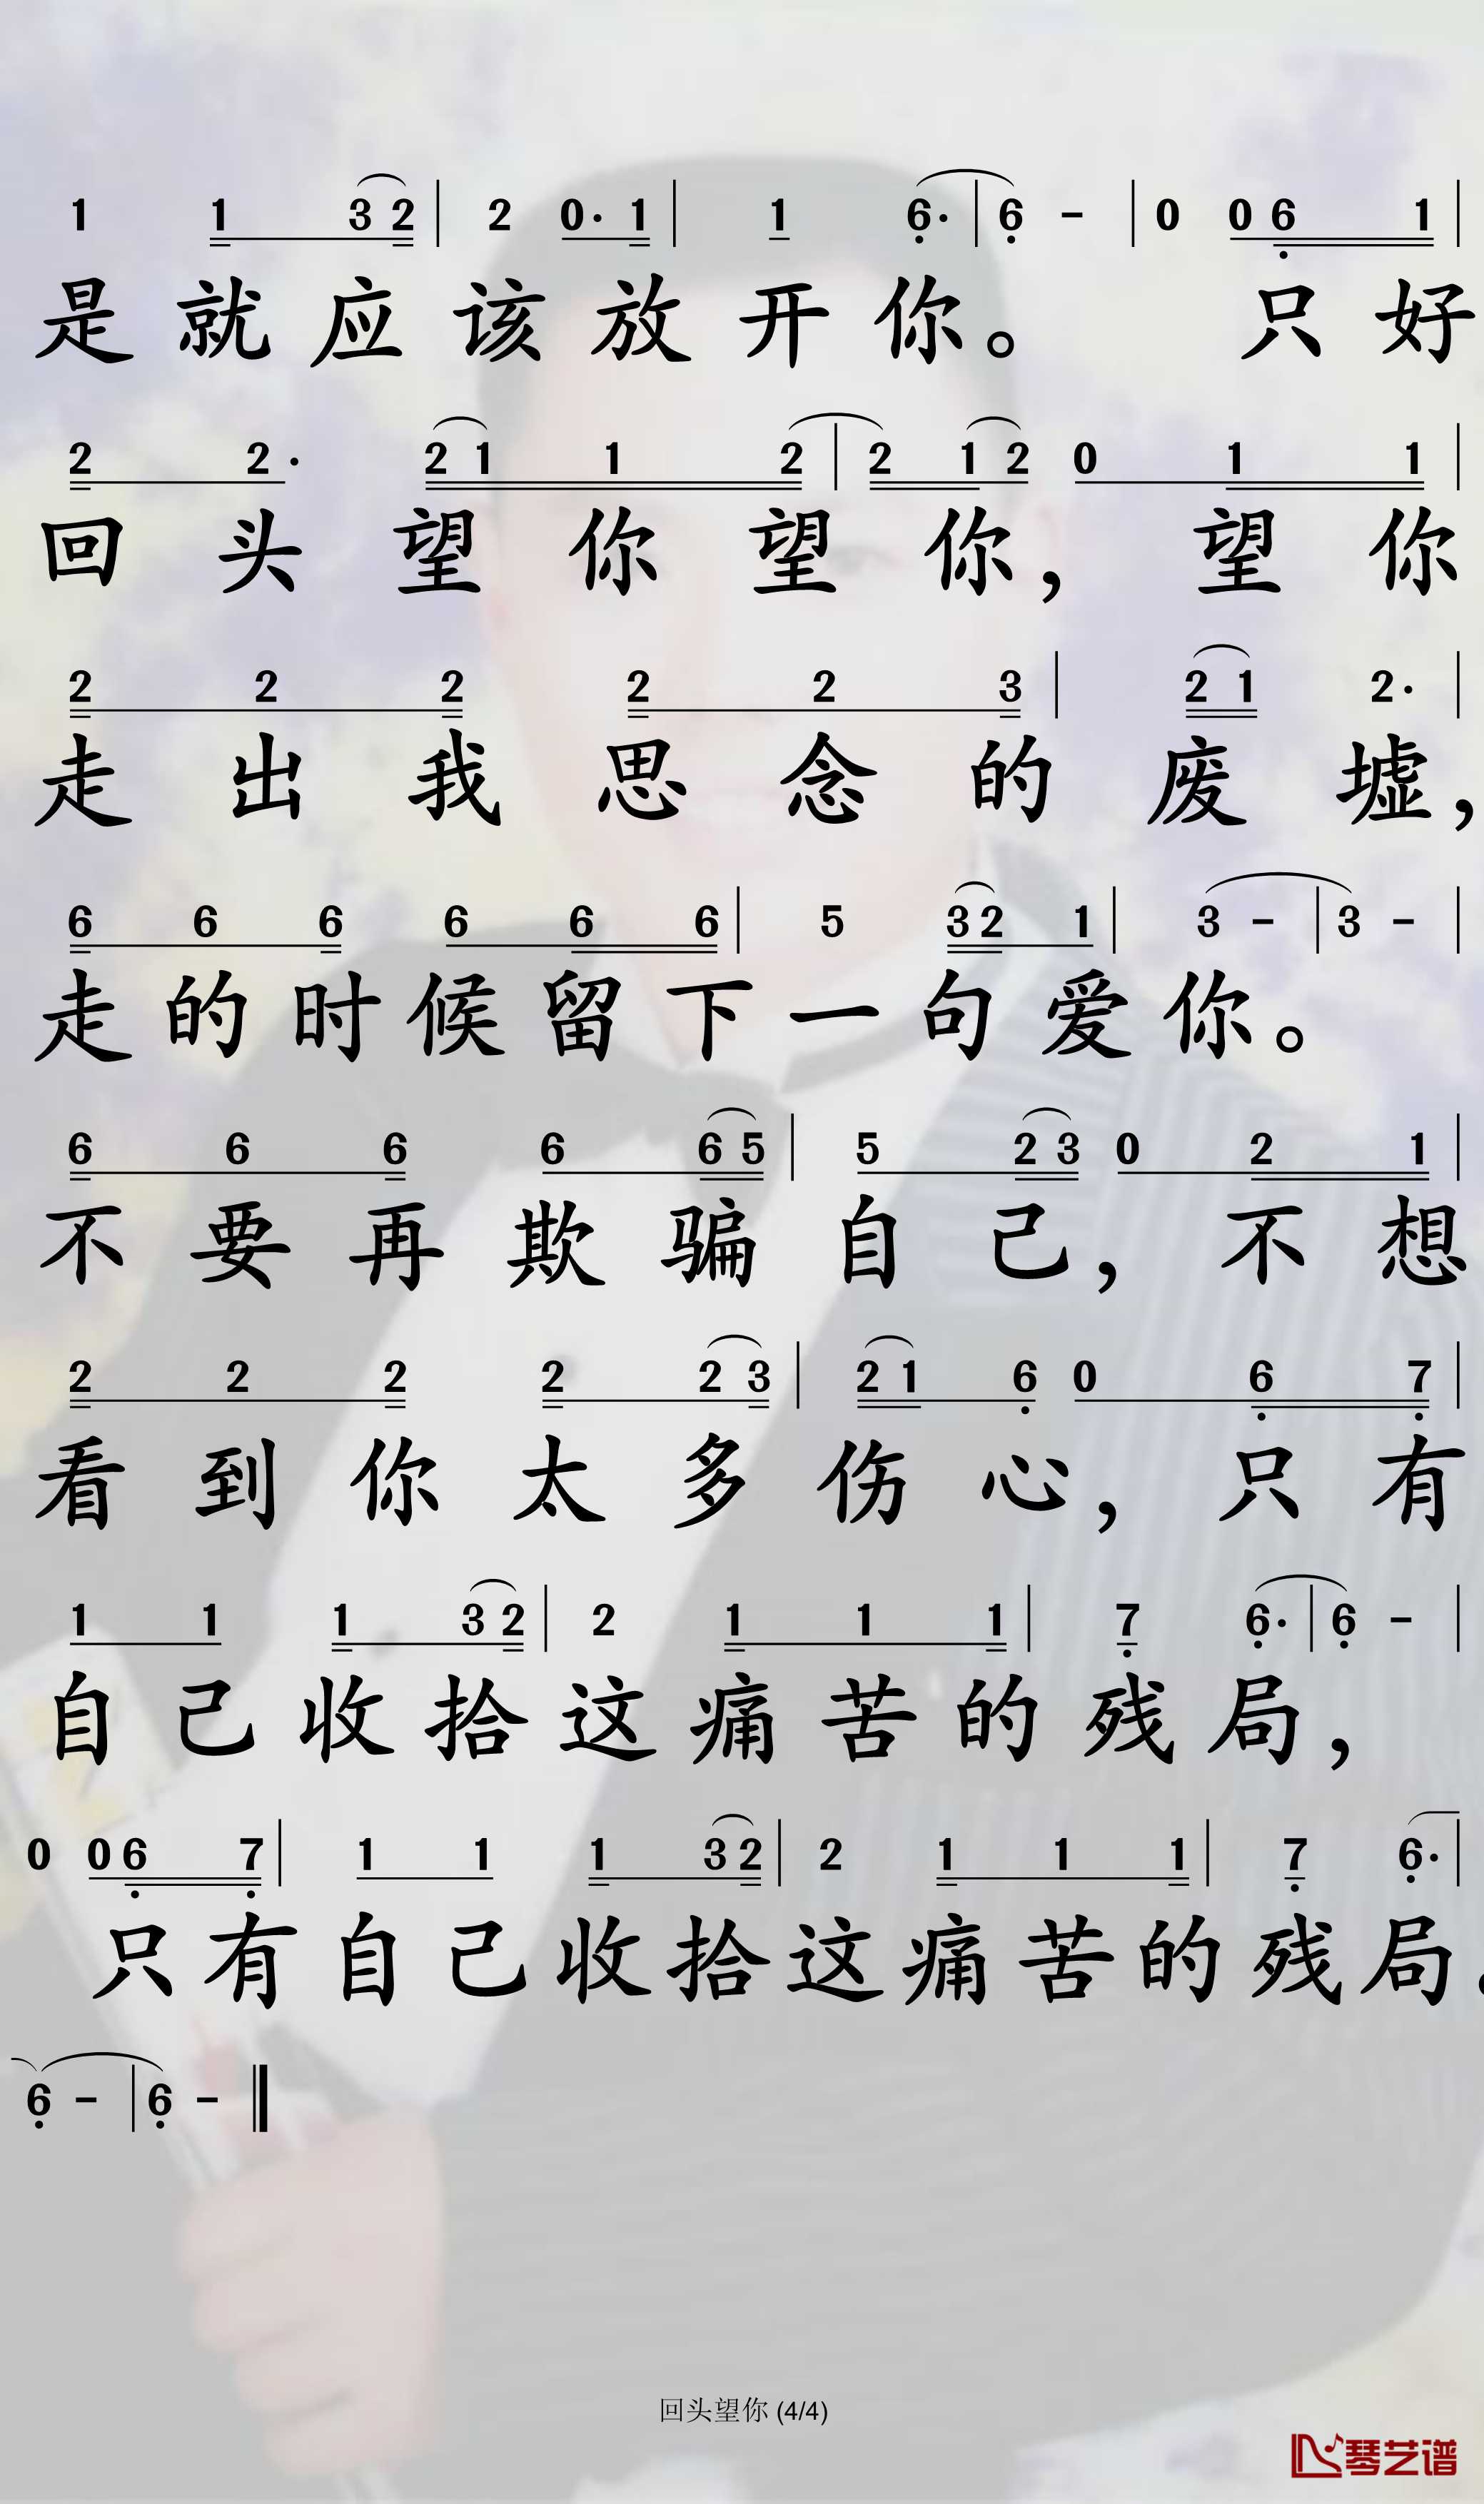 1 1 3 2 | 2 0· 1 | 1 6· | 6 - | 0 0 6 1 |
是就应该放开你。 只好
2 2· 2 1 1 2 | 2 1 2 0 1 1 |
回头望你望你，望你
2 2 2 2 2 3 | 2 1 2· |
走出我思念的废墟，
6 6 6 6 6 6 | 5 3 2 1 | 3 - | 3 - |
走的时候留下一句爱你。
6 6 6 6 6 5 | 5 2 3 0 2 1 |
不要再欺骗自己，不想
2 2 2 2 2 3 | 2 1 6 0 6 7 |
看到你太多伤心，只有
1 1 1 3 2 | 2 1 1 1 | 7 6· | 6 - |
自己收拾这痛苦的残局，
0 0 6 7 | 1 1 1 3 2 | 2 1 1 1 | 7 6· |
只有自己收拾这痛苦的残局。
6 - | 6 - ‖
回头望你 (4/4)
琴艺谱